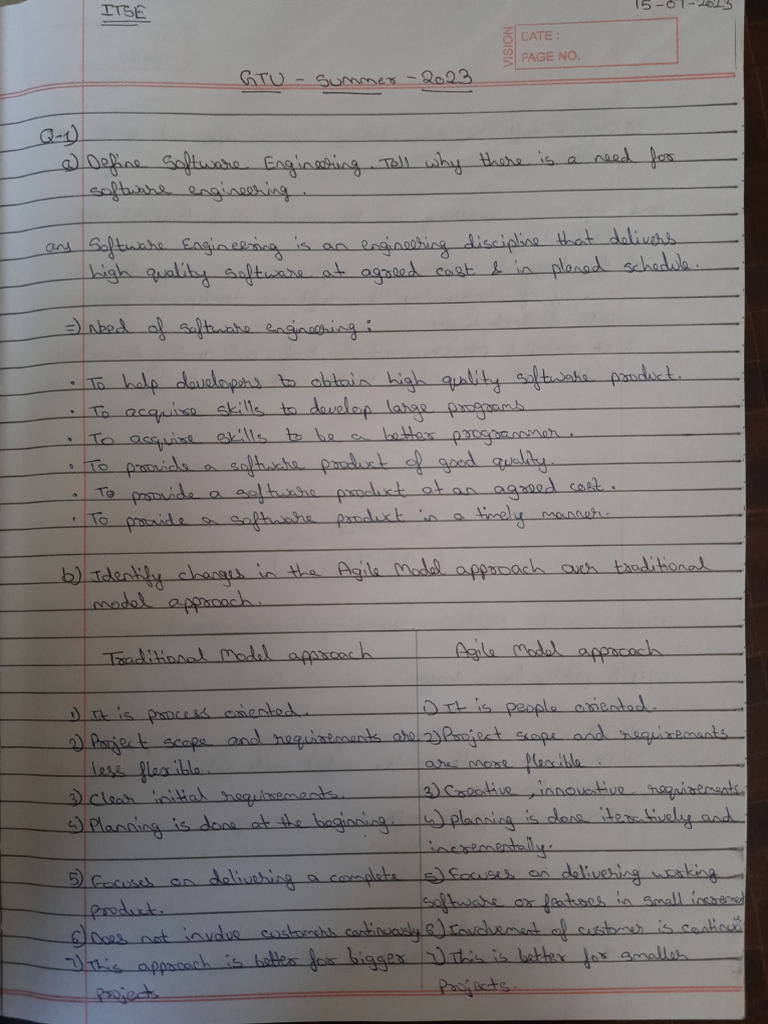 ITSE
15-07-2023
VISION
DATE :
PAGE NO.
GTU - Summer - 2023
Q-1)
a) Define Software Engineering. Tell why there is a need for
software engineering.
ans Software Engineering is an engineering discipline that delivers
high quality software at agreed cost & in planed schedule.
=) Need of software engineering :
• To help developers to obtain high quality software product.
• To acquire skills to develop large programs
• To acquire skills to be a better programmer.
• To provide a software product of good quality.
• To provide a software product at an agreed cost.
• To provide a software product in a timely manner.
b) Identify changes in the Agile Model approach over traditional
model approach.
Traditional Model approach
1) It is process oriented.
2) Project scope and requirements are
less flexible.
3) Clear initial requirements.
4) Planning is done at the beginning.
5) Focuses on delivering a complete
product.
6) Does not involve customers continuously
7) This approach is better for bigger
projects
Agile Model approach
1) It is people oriented.
2) Project scope and requirements
are more flexible.
3) Creative, innovative requirements.
4) Planning is done iteratively and
incrementally.
5) Focuses on delivering working
software or features in small
6) Involvement of customer is
7) This is better for smaller
projects.